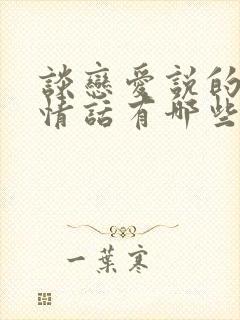 談戀愛説的
情話有哪些
一葉寒